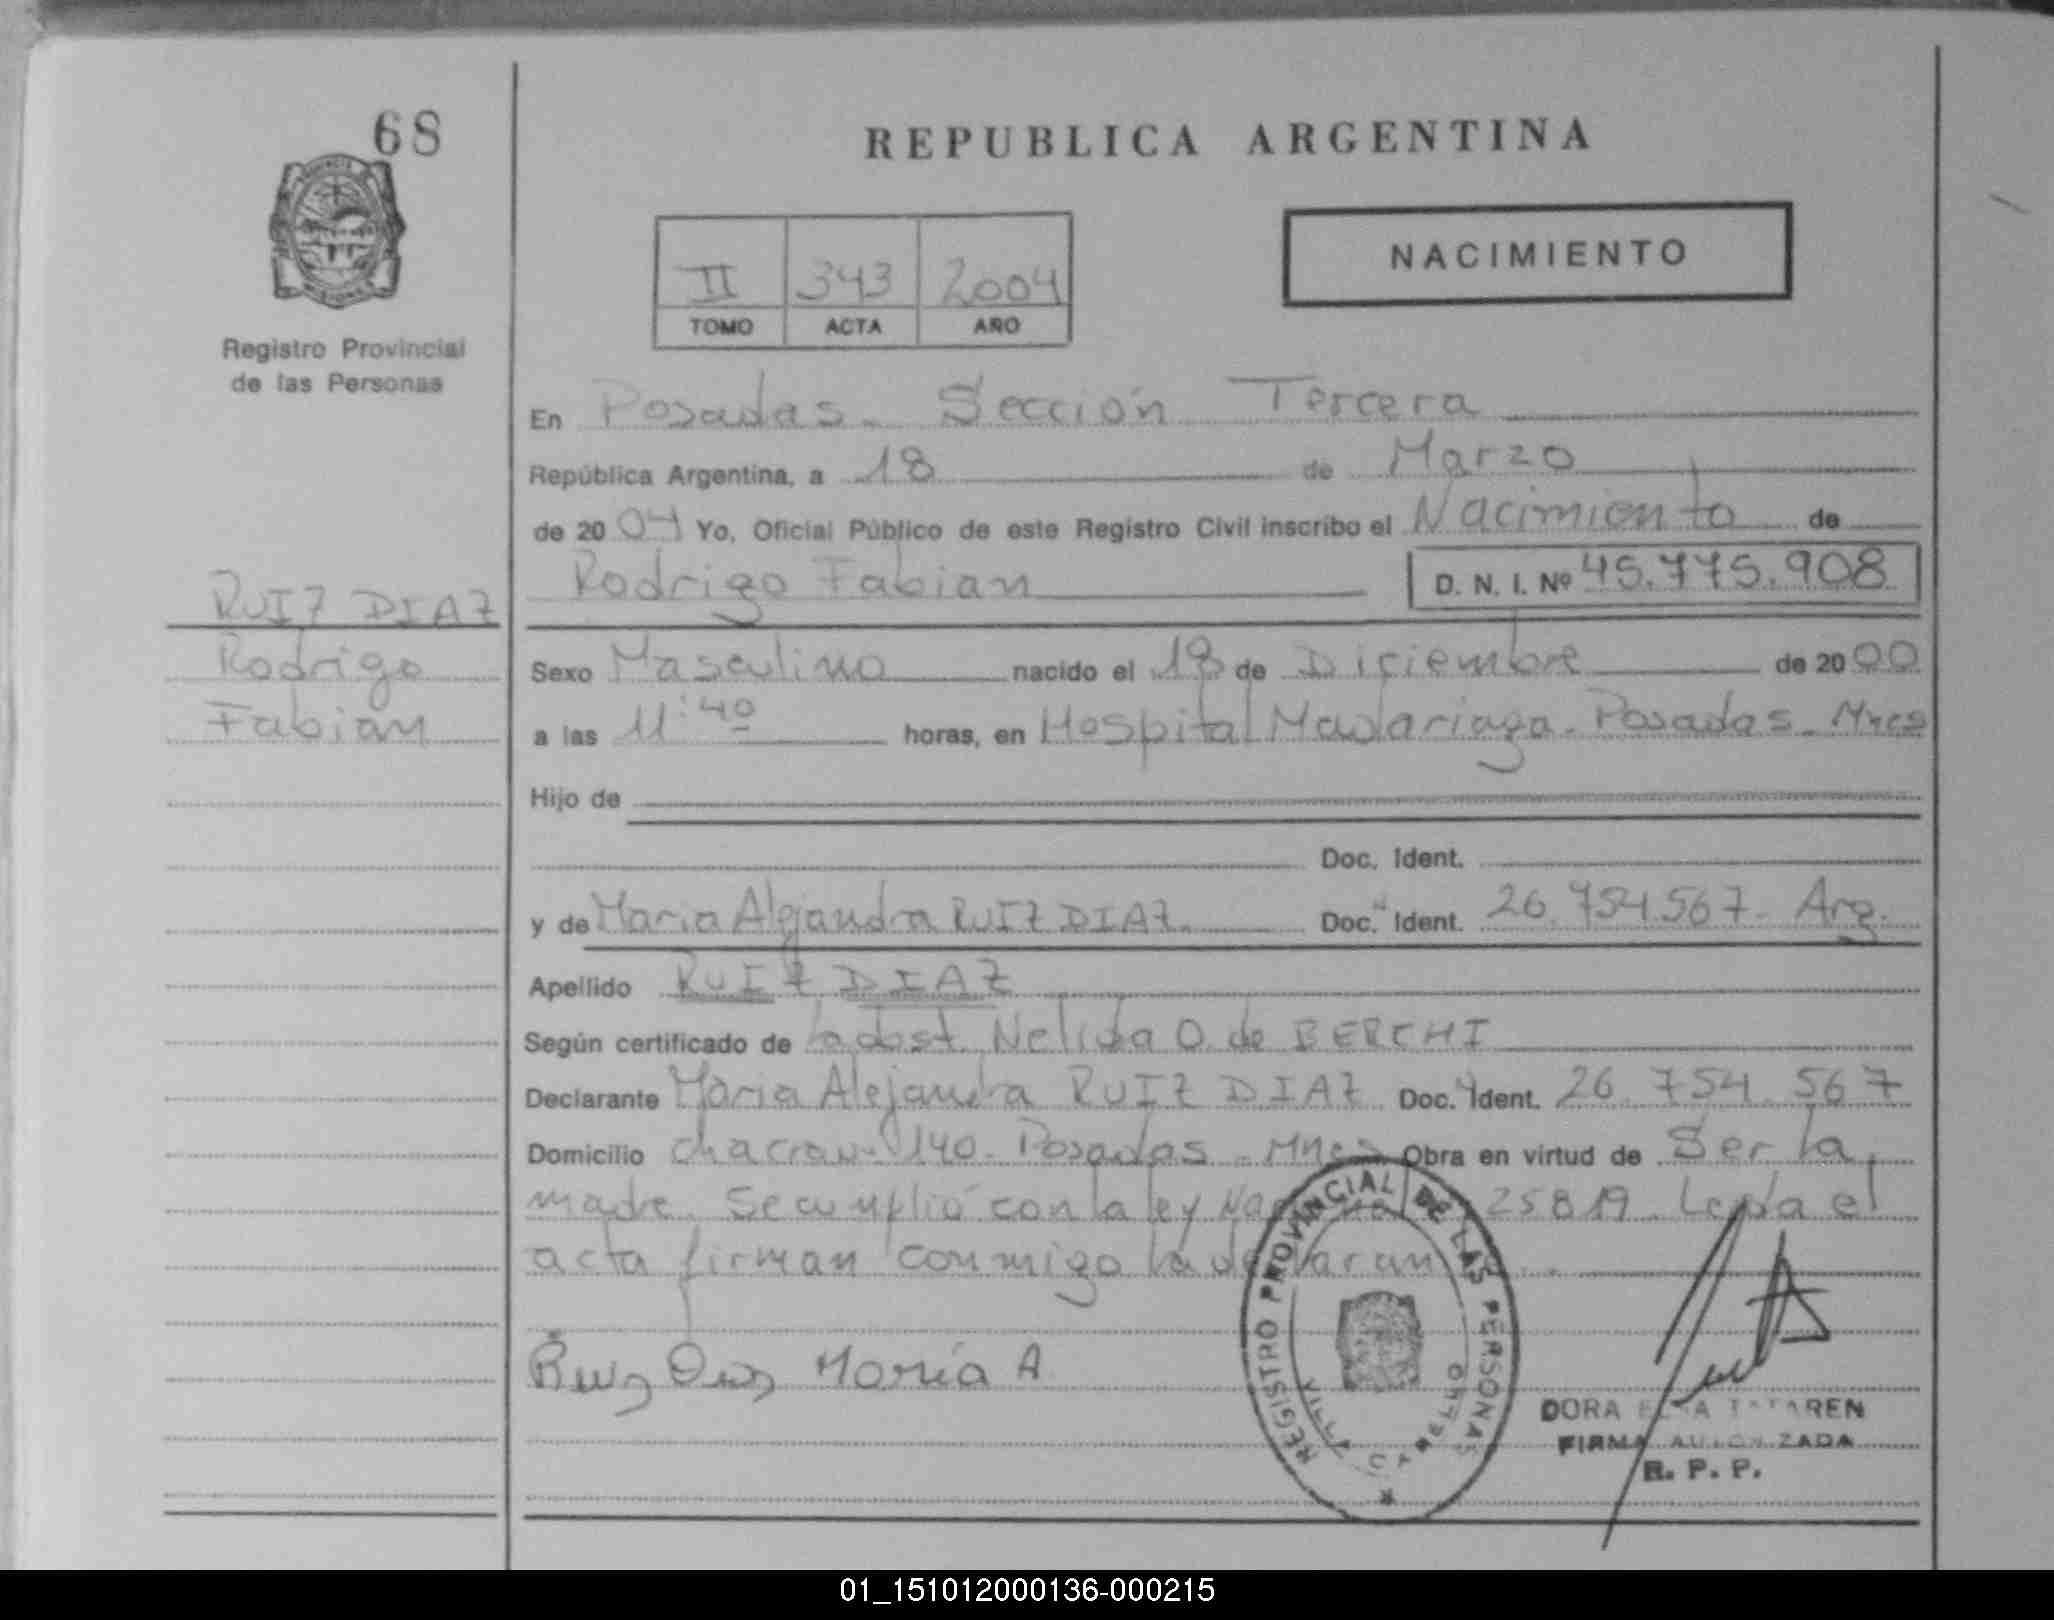 68
REPUBLICA ARGENTINA
NACIMIENTO
II 343 2004
TOMO ACTA AÑO
Registro Provincial
de las Personas
En Posadas - Sección Tercera
República Argentina, a 18 de Marzo
de 2004 Yo, Oficial Público de este Registro Civil inscribo el Nacimiento de
Rodrigo Fabian D. N. I. Nº 45.775.908
RUIZ DIAZ
Rodrigo
Fabian
Sexo Masculino nacido el 18 de Diciembre de 2000
a las 11:40 horas, en Hospital Madariaga - Posadas - Mnes
Hijo de
Doc. Ident.
y de Maria Alejandra RUIZ DIAZ. Doc. Ident. 26.754.567 - Arg.
Apellido RUIZ DIAZ
Según certificado de la obst. Nelida O. de BERCHI
Declarante Maria Alejandra RUIZ DIAZ Doc. Ident. 26.754.567
Domicilio chacra 140 - Posadas - Mnes Obra en virtud de Ser la
madre. Se cumplió con la ley 25819. Leida el
acta firman conmigo la
Ruiz Diaz María A
REGISTRO PROVINCIAL DE LAS PERSONAS
VILLA CABELLO
DORA
FIRMA AUTORIZADA
R. P. P.
01_151012000136-000215